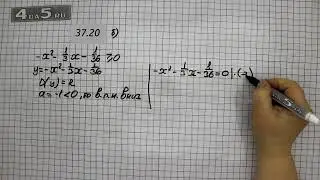 4QR5.RU
37.20 в)
-x² - 1/3x - 1/36 ≥ 0
y = -x² - 1/3x - 1/36
D(y) = R
a = -1 < 0, то в.п.н. вниз
-x² - 1/3x - 1/36 = 0 | ·(-1)